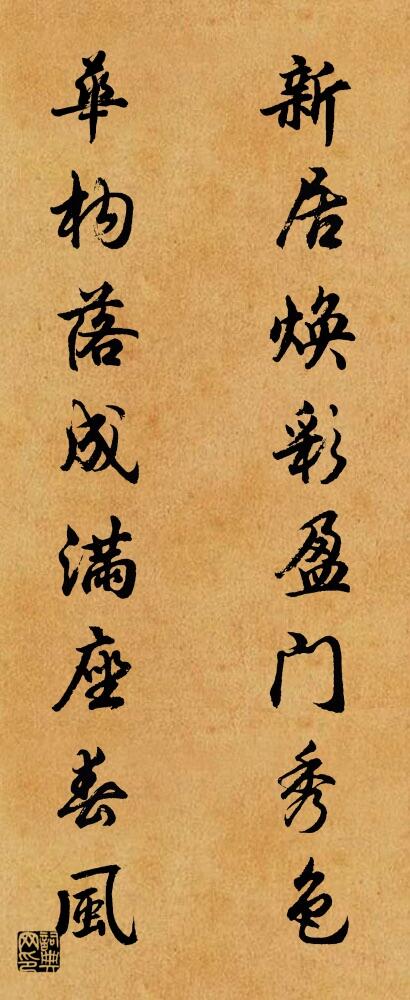 新居焕彩盈门秀色
華构落成满座春風